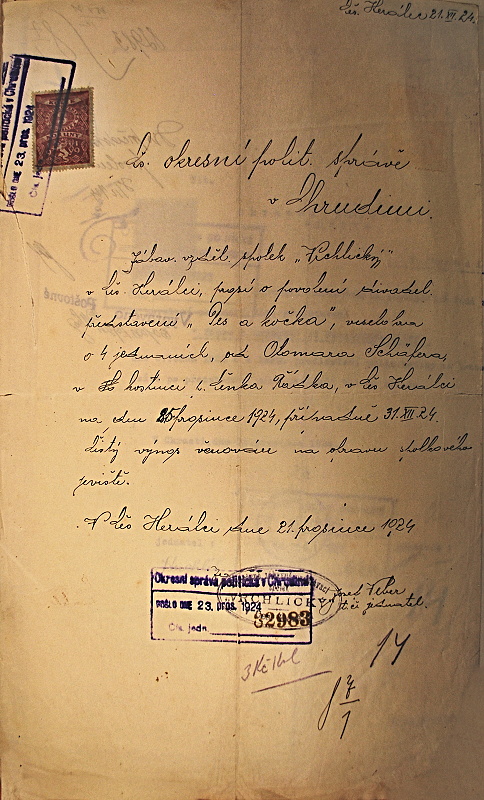 Čs. Herálec 21.XII.24.
Okresní správa politická v Chrudimi
DOŠLO DNE 23. pros. 1924
Čís. jedn.
Čs. okresní polit. správě
v Chrudimi.
Zábav. vzděl. spolek „Vrchlický“
v Čs. Herálci, prosí o povolení divadel.
představení „Pes a kočka“, veselohra
o 4 jednáních, od Otomara Schäfera,
v hostinci p. Čeňka Řádka, v Čs Herálci
na den 25 prosince 1924, případně 31.XII.24.
Čistý výnos věnován na opravu spolkového
jeviště.
V Čs Herálci dne 21. prosince 1924
Okresní správa politická v Chrudimi
DOŠLO DNE 23. pros. 1924
Čís. jedn.
32983
VRCHLICKÝ
Josef Veber
t. č. jednatel.
3 Kč kol
14